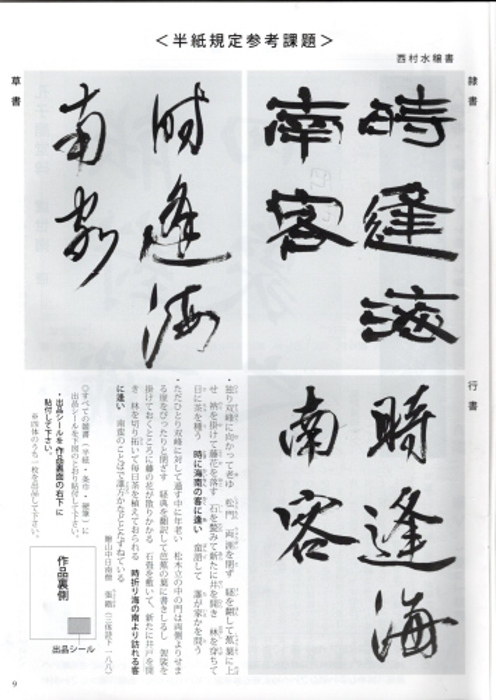 ＜半紙規定参考課題＞
西村水穐書
隷書
時逢海
南客
草書
時逢海
南客
行書
時逢海
南客
・独り双峰に向かって老ゆ 松門 両涯を閉ず 経を翻して蕉葉に上
せ 衲を掛けて藤花を落す 石を甃みて新たに井を開き 林を穿ちて
日に茶を種う 時に海南の客に逢い 蛮語して 誰が家かを問う
・ただひとり双峰に対して過す中に年老い 松木立の中の門は両側よりせま
る崖をぴったりと閉ざす 経典を翻訳して芭蕉の葉に書きしるし 袈裟を
掛けておくところに藤の花が散りかかる 石畳を敷いて、新たに井戸を開
き 林を切り拓いて毎日茶を植えておられる 時折り海の南より訪れる客
に逢い 南蛮のことばで誰方かなどとたずねている
贈山中日南僧 張籍（三体詩下一八八）
○すべての競書（半紙・条巾・硬筆）に
出品シールを下図のとおり貼付して下さい。
・出品シールを 作品裏面の右下 に
貼付して下さい。
※四体のうち一枚を出品して下さい。
作品裏側
出品シール
9